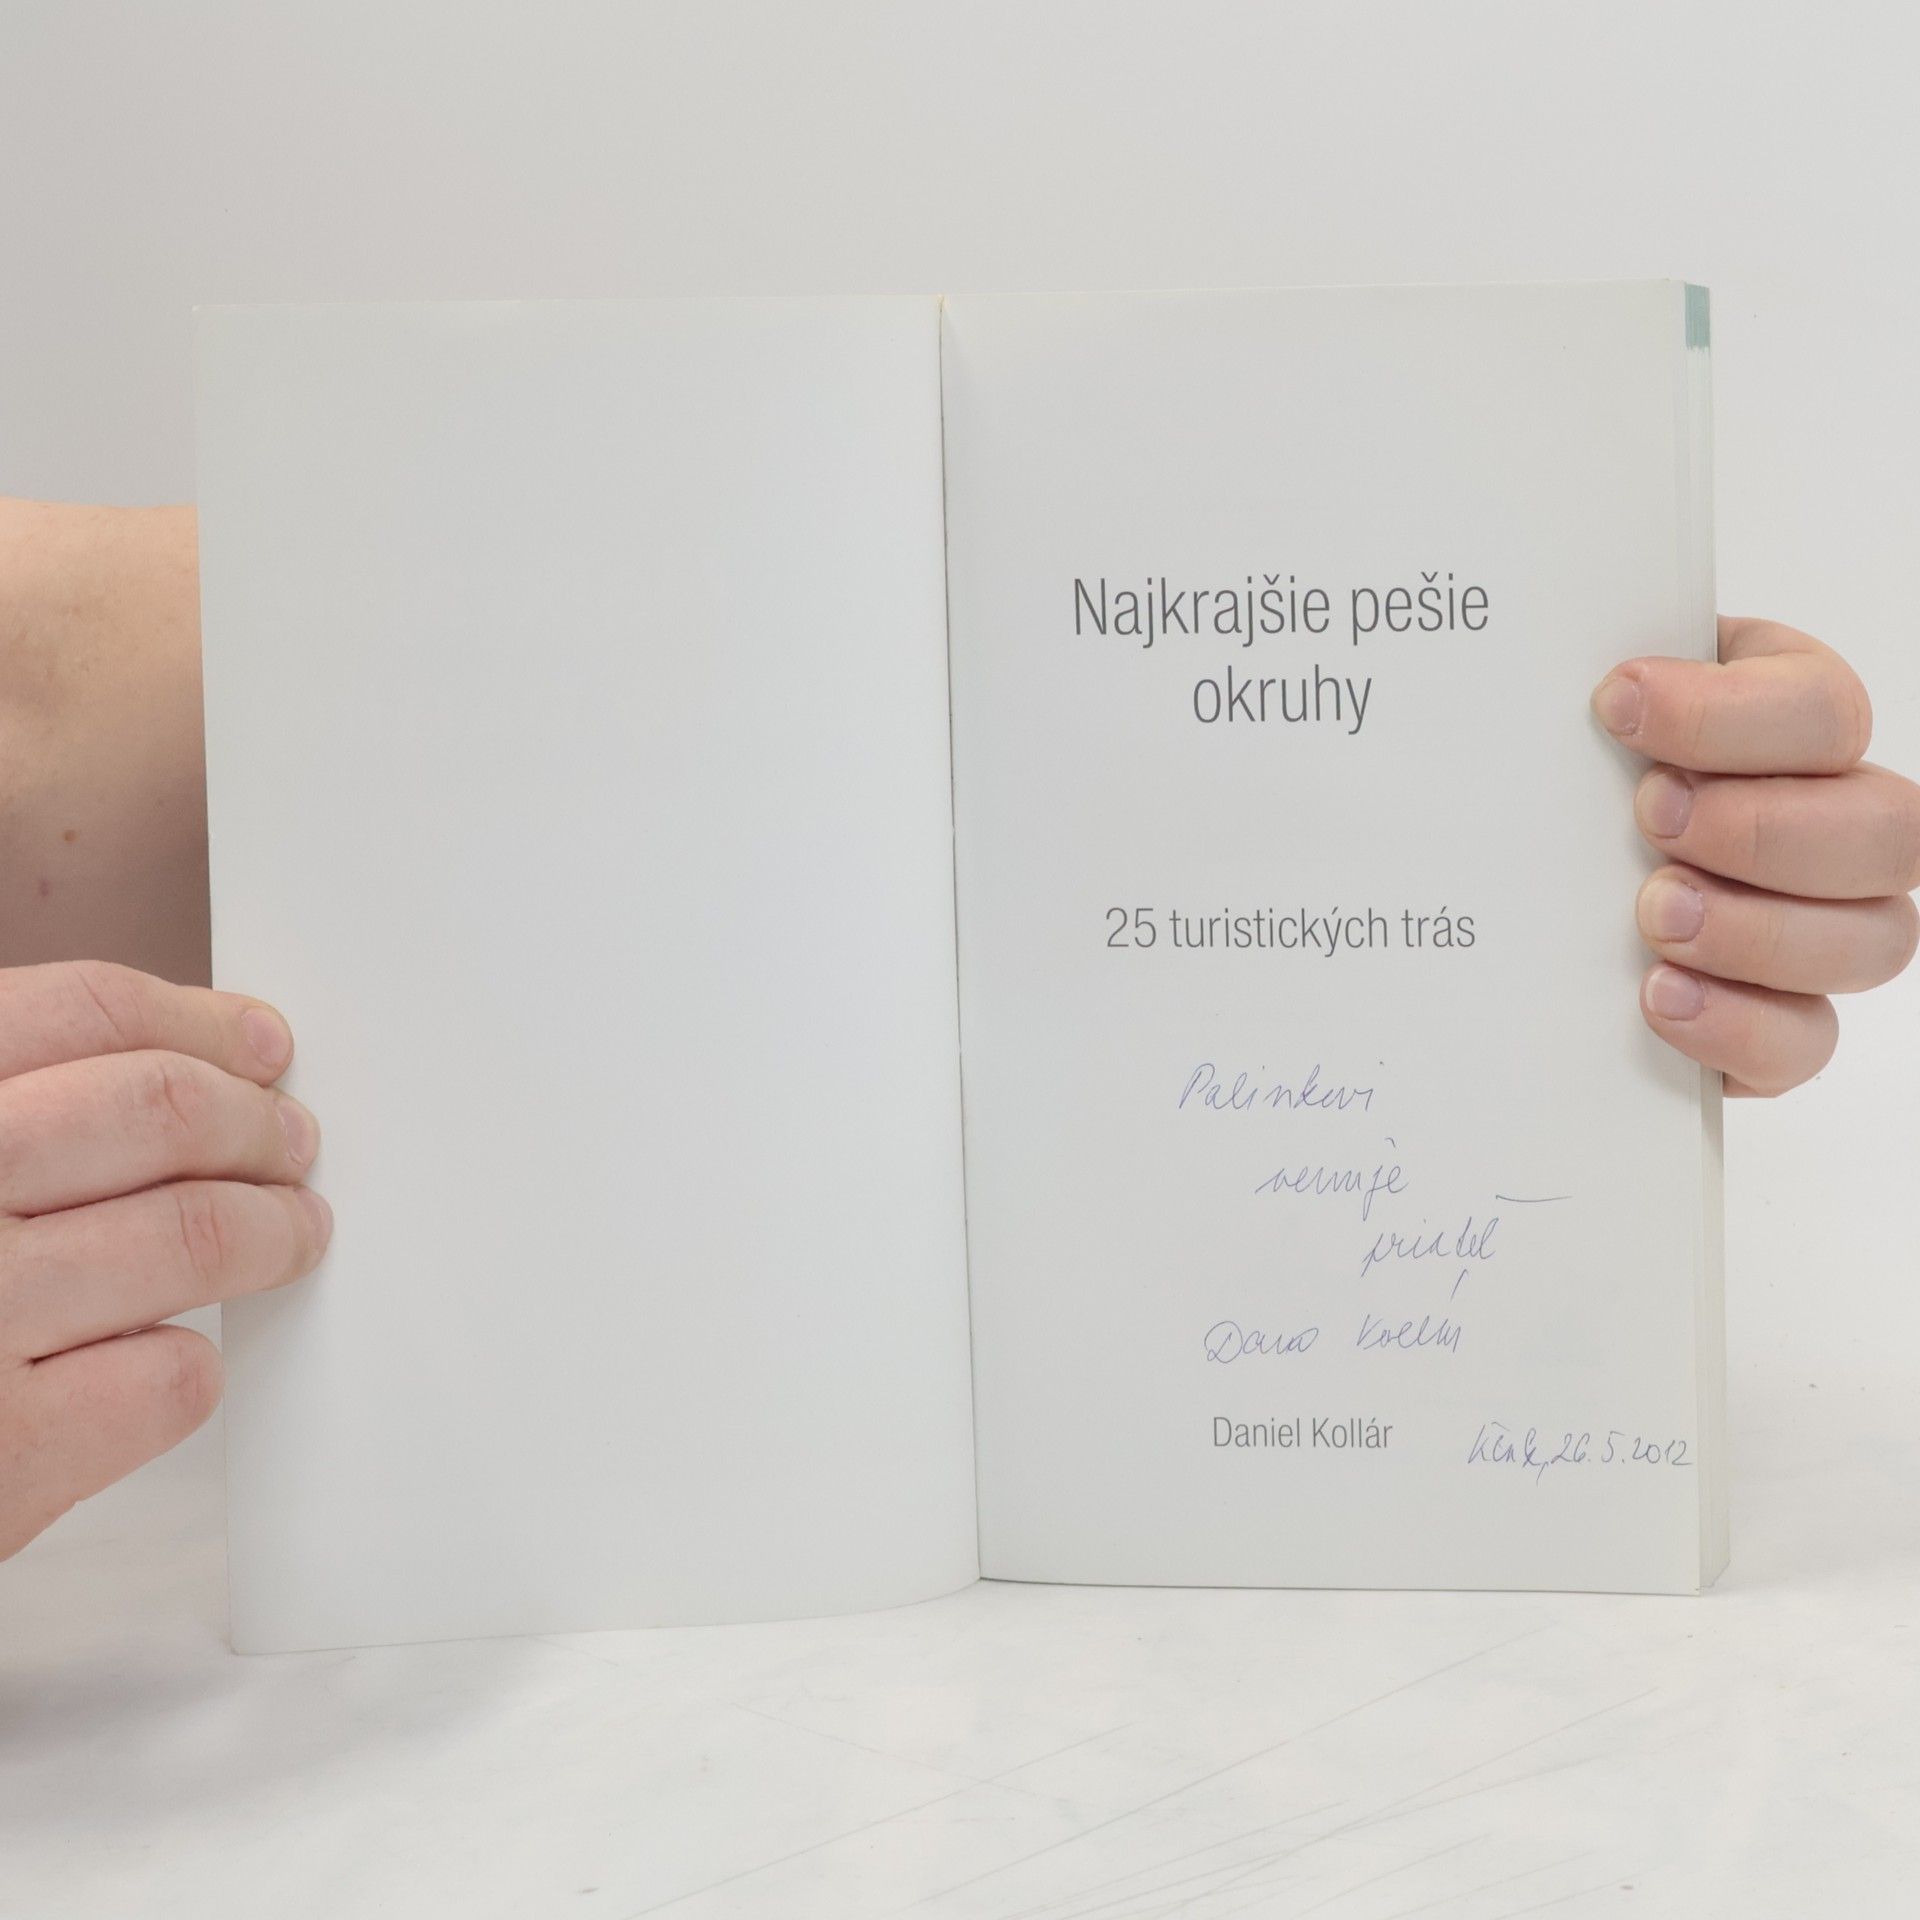 Najkrajšie pešie
okruhy
25 turistických trás
Palinkovi
venuje
priateľ
Dano Kollár
Daniel Kollár
26.5.2012